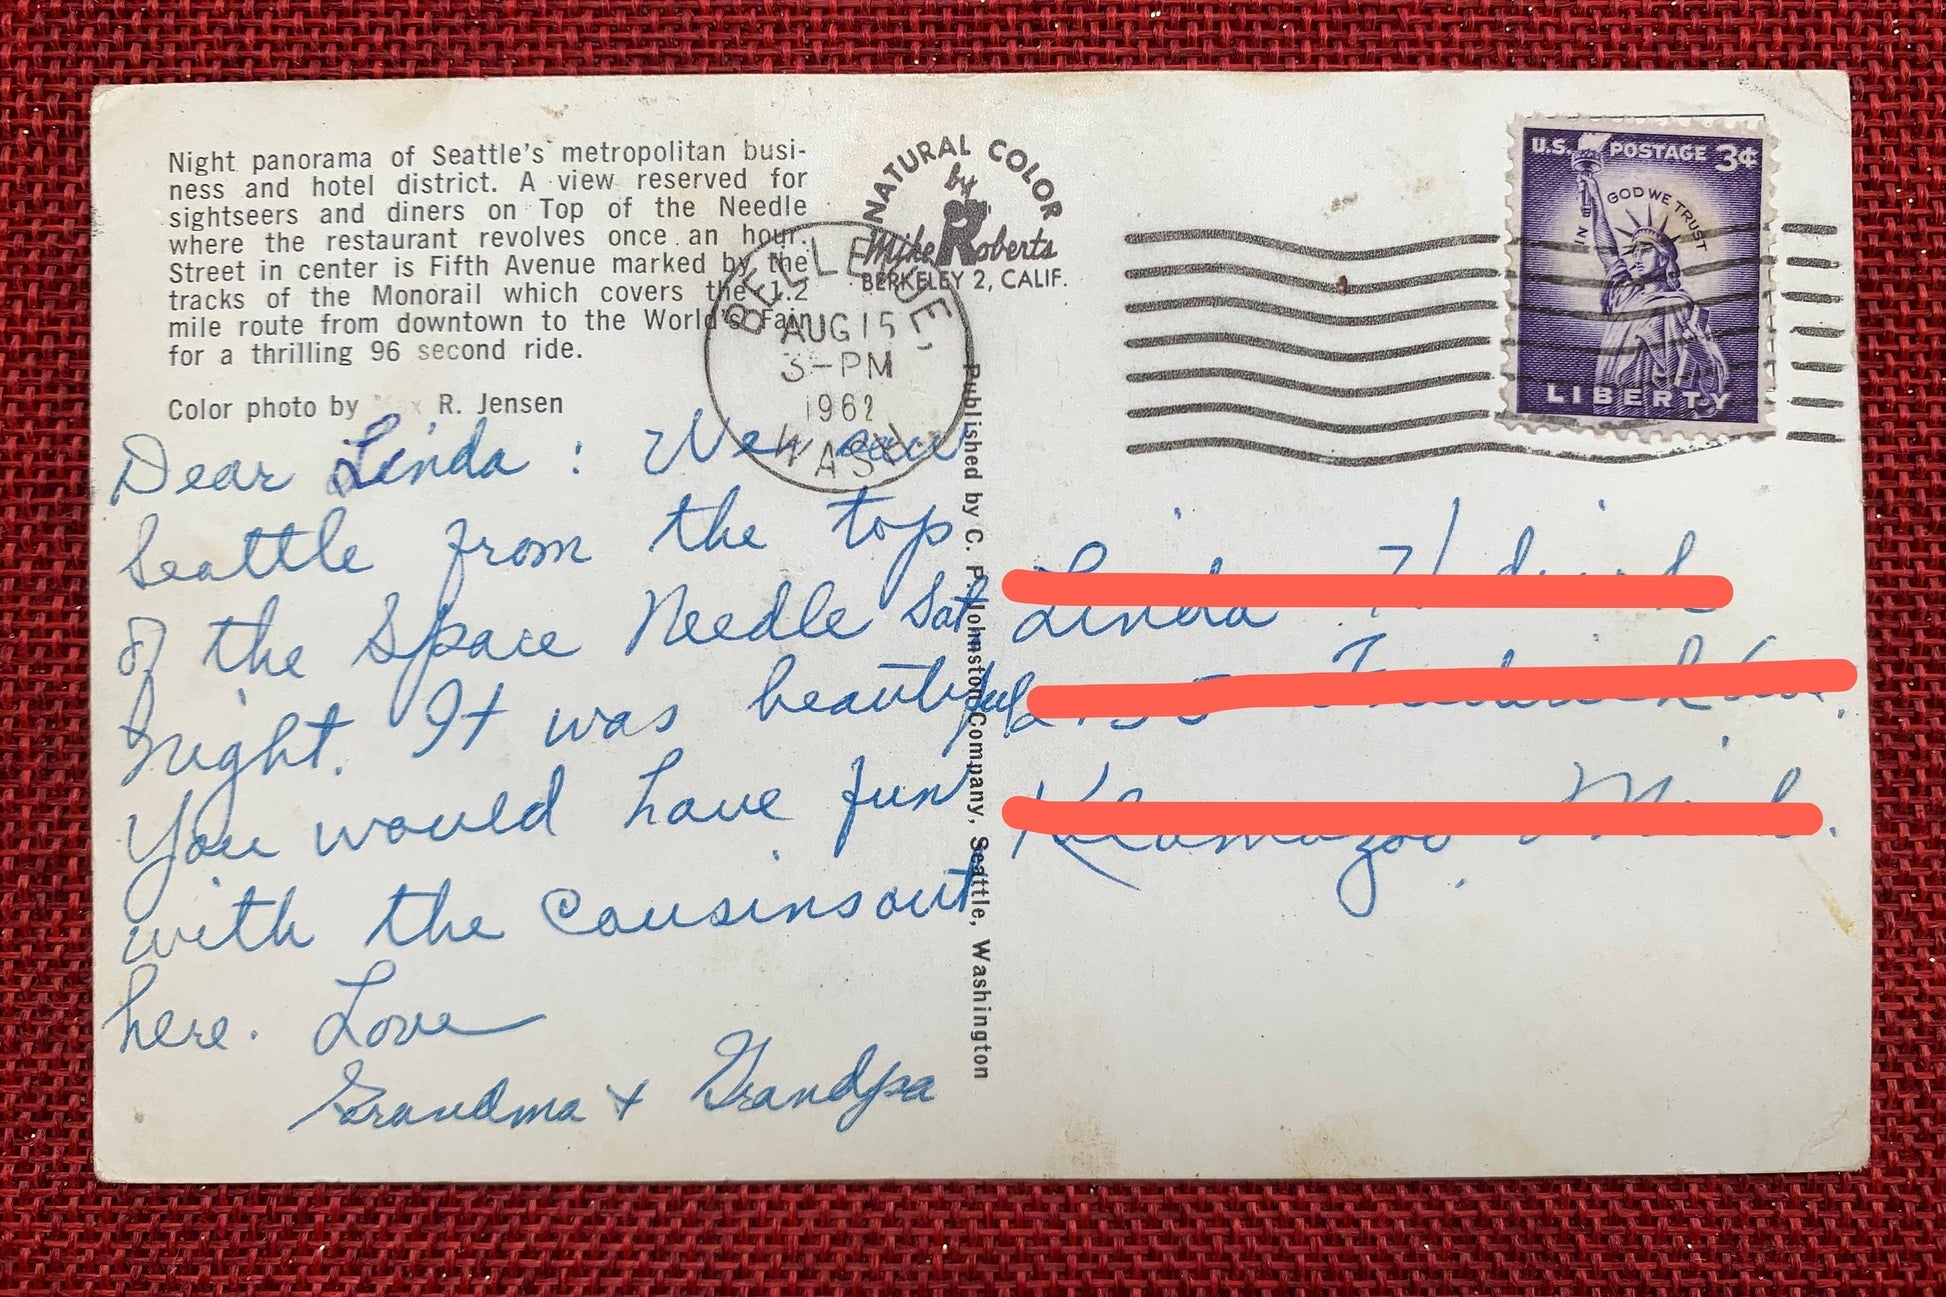 Night panorama of Seattle's metropolitan busi-
ness and hotel district. A view reserved for
sightseers and diners on Top of the Needle
where the restaurant revolves once an hour.
Street in center is Fifth Avenue marked by the
tracks of the Monorail which covers the 1.2
mile route from downtown to the World's Fair
for a thrilling 96 second ride.
Color photo by R. Jensen
NATURAL COLOR
by
Mike Roberts
BERKELEY 2, CALIF.
BELLEVUE,
AUG 15
3-PM
1962
WASH
U.S. POSTAGE 3¢
IN GOD WE TRUST
LIBERTY
Dear Linda: We saw
Seattle from the top
of the Space Needle Sat
night. It was beautiful
You would have fun
with the cousins out
here. Love
Grandma + Grandpa
Published by C. P. Johnston Company, Seattle, Washington
Linda
Kalamazoo Mich.